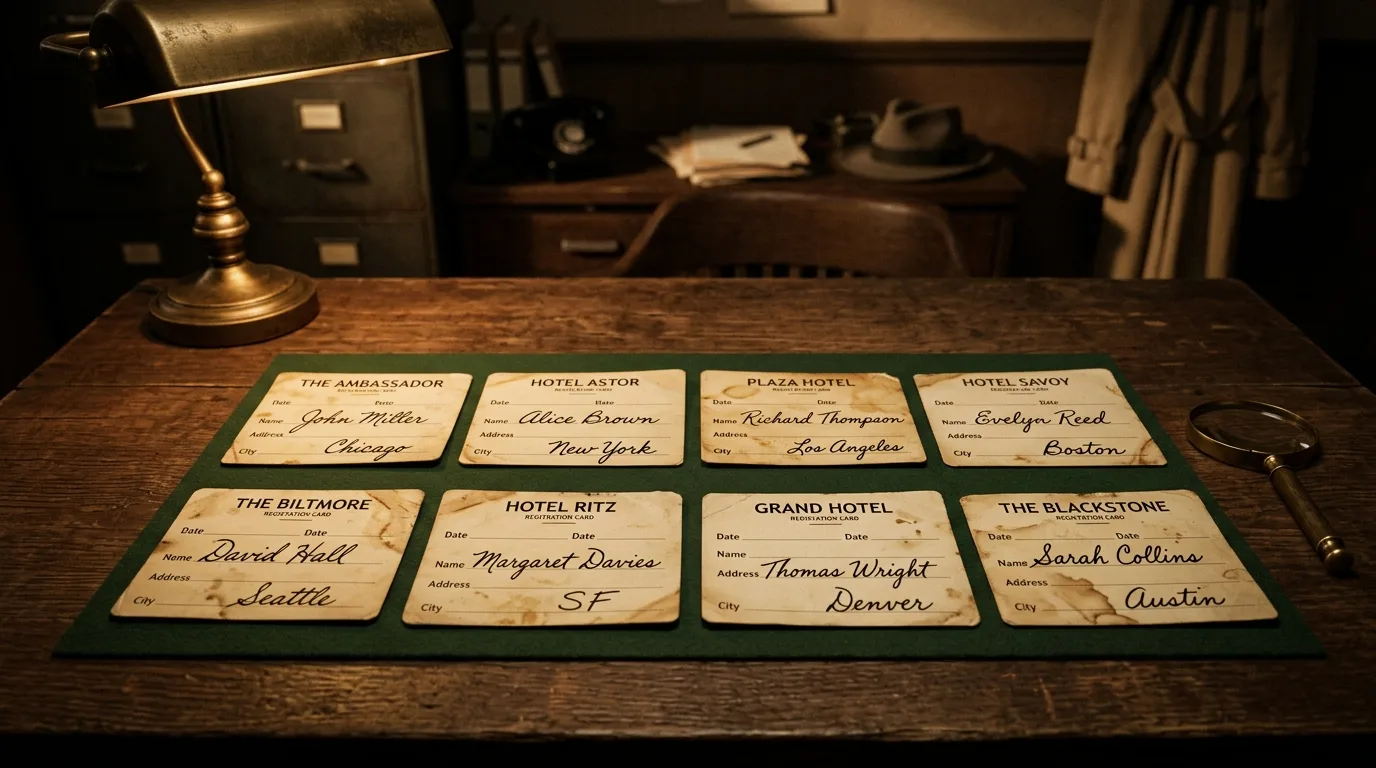 THE AMBASSADOR
Date
Name John Miller
Address
City Chicago
HOTEL ASTOR
Date
Name Alice Brown
Address
City New York
PLAZA HOTEL
Date
Name Richard Thompson
Address
City Los Angeles
HOTEL SAVOY
Date
Name Evelyn Reed
Address
City Boston
THE BILTMORE
REGISTRATION CARD
Date Date
Name David Hall
Address
City Seattle
HOTEL RITZ
REGISTRATION CARD
Date Date
Name Margaret Davies
Address
City SF
GRAND HOTEL
REGISTRATION CARD
Date Date
Name
Address Thomas Wright
City Denver
THE BLACKSTONE
REGISTRATION CARD
Date Date
Name Sarah Collins
Address
City Austin